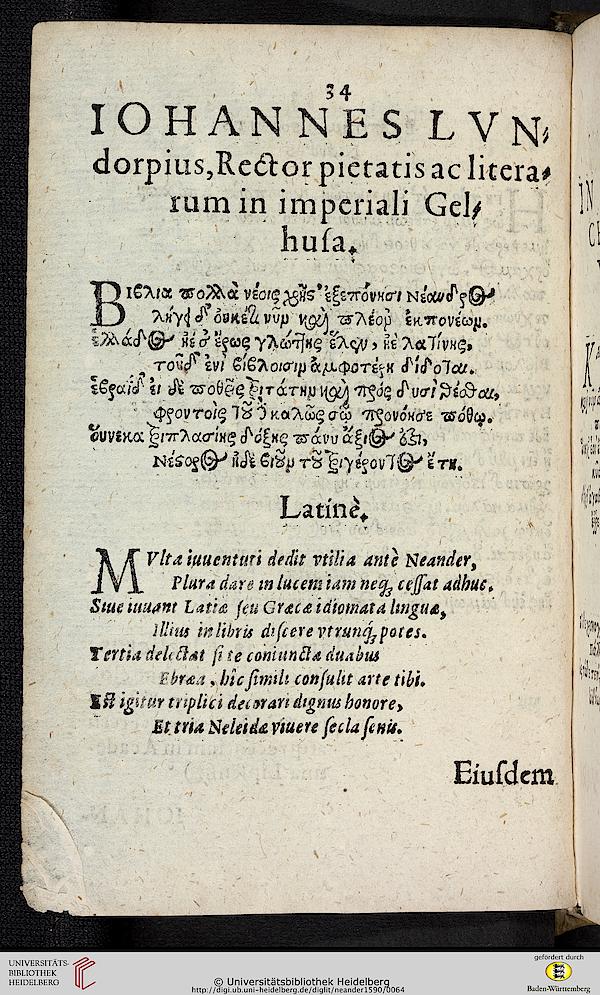 34
IOHANNES LVN-
dorpius, Rector pietatis ac litera-
rum in imperiali Gel-
huſa.
Βιβλια πολλὰ νέοις χρῆς' ἐξεπόνησι Νέανδρος
λήγι δ' ὀυκέτι νῦμ καὶ πλέομ ἐκπονέωμ.
ἑλλάδος ἠέ σ' ἔρως γλώττης ἕλεν, ἠὲ λατίνης,
τοῦδ' ἐνὶ βίβλοισιμ ἀμφοτέρη δίδοται.
ἑβραίδ ει δὲ ποθεῖς τριτάτημ καὶ πρός δυσὶ θέσθαι,
φροντοις τῦ καλῶς σῶ προνόησε πόθῳ.
ὅυνεκα τριπλασίης δόξης πάνυ ἄξιος ὅξι,
Νέςορος ἠδὲ βιοῦμ τοῦ τριγέροντος ἔτη.
Latinè.
MVlta iuuenturi dedit vtilia antè Neander,
Plura dare in lucem iam neq; ceſſat adhuc.
Siue iuuant Latiæ ſeu Græcæ idiomata linguæ,
Illius in libris diſcere vtrunq; potes.
Tertia delectat ſi te coniuncta duabus
Ebræa, hîc ſimili conſulit arte tibi.
Eſt igitur triplici decorari dignus honore,
Et tria Neleidæ viuere ſecla ſenis.
Eiuſdem
UNIVERSITÄTS-
BIBLIOTHEK
HEIDELBERG
© Universitätsbibliothek Heidelberg
http://digi.ub.uni-heidelberg.de/diglit/neander1590/0064
gefördert durch
Baden-Württemberg